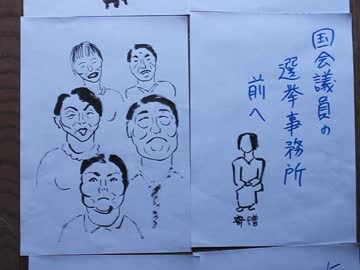 国会議員の
選挙事務所
前へ
寄贈